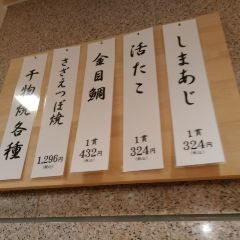 しまあじ
1貫
324円
(税込)
活たこ
1貫
324円
(税込)
金目鯛
1貫
432円
(税込)
さざえつぼ焼
1,296円
(税込)
干物焼各種